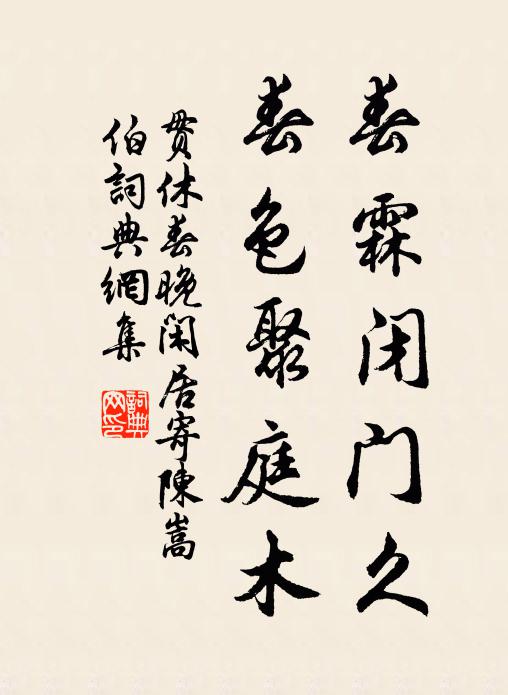 春霖闭门久
春色聚庭木
贯休春晚闲居寄陳嵩
伯詞典網集
詞典
网印